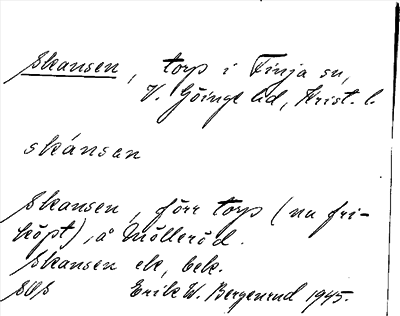 Skansen, torp i Finja sn,
V. Göinge hd, Krist. l.
skánsen
Skansen, förr torp (nu fri-
köpt), å Mölleröd.
Skansen ek, bek.
SOS Erik W. Bergenrud 1945.